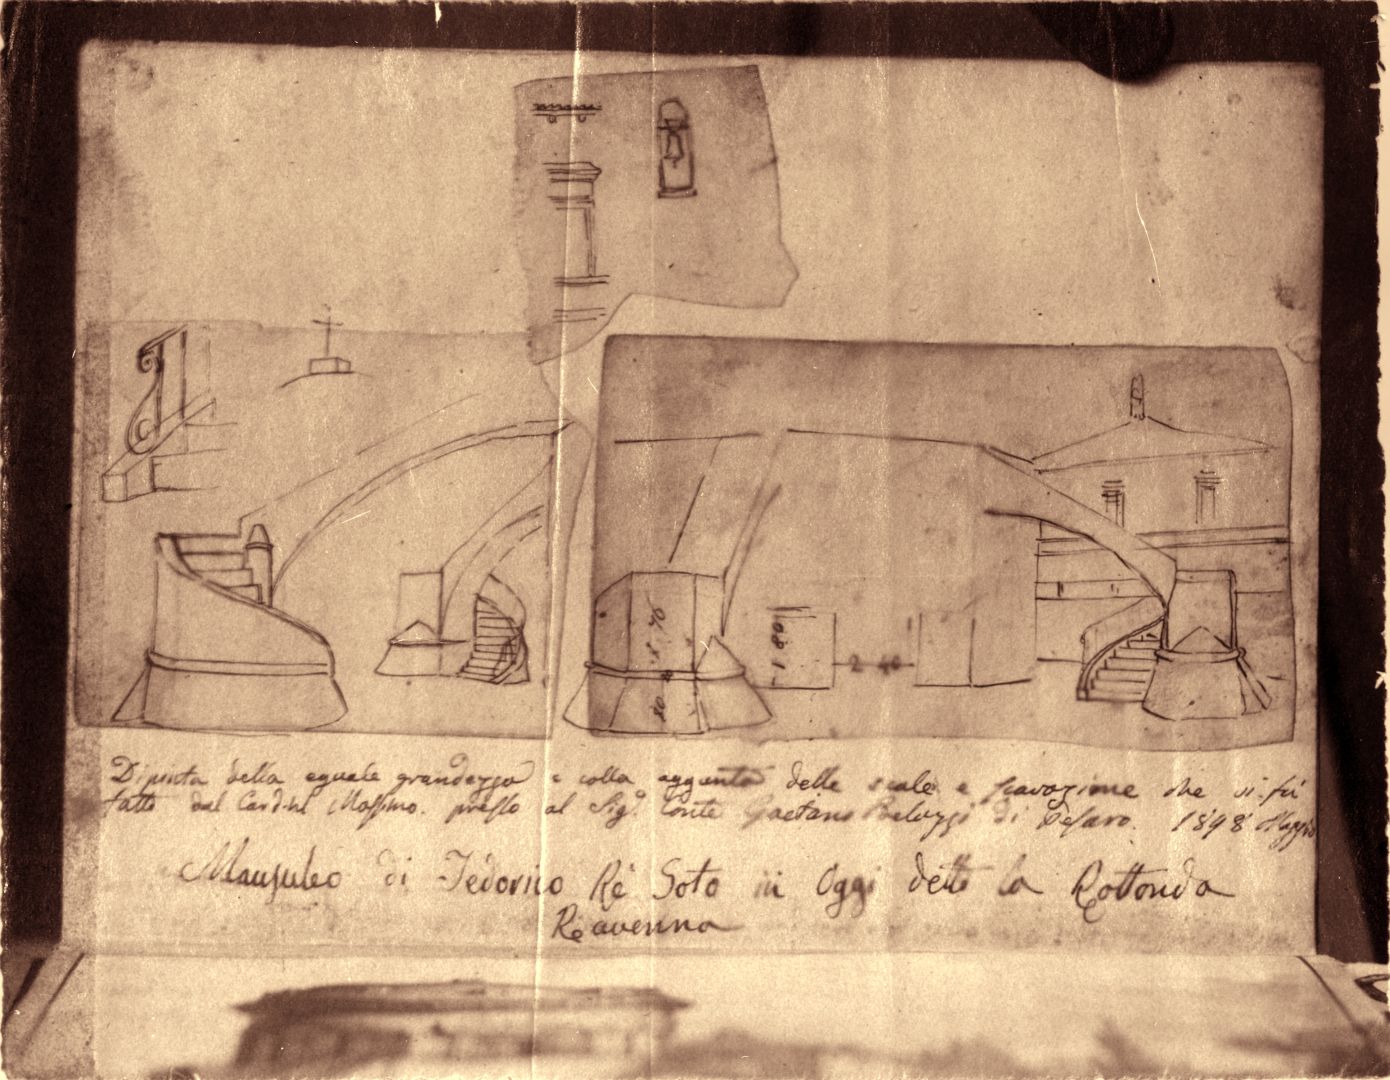 8.70
80
1.80
2 40
Dipinta della eguale grandezza e colla aggunta delle scale e scavazione che vi fù
fatto dal Card.nl Massimo. presso al Sig.r Conte Gaetano di Pesaro. 1898 Maggio
Mausuleo di Fedorico Rè Goto in Oggi dette la Rottonda
Ravenna